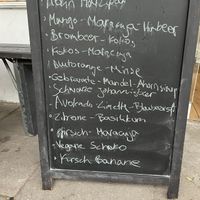 Mango - Maracuja - Himbeer
Brombeer - Kokos
Kokos - Maracuja
Blutorange - Minze
Gebrannte - Mandel - Ahornsirup
Schwarze Johannisbeer
Avokado - Limette - Blaubeere
Zitrone - Basilikum
Kirsch - Maracuja
Vegane Schoko
Kirsch Banane